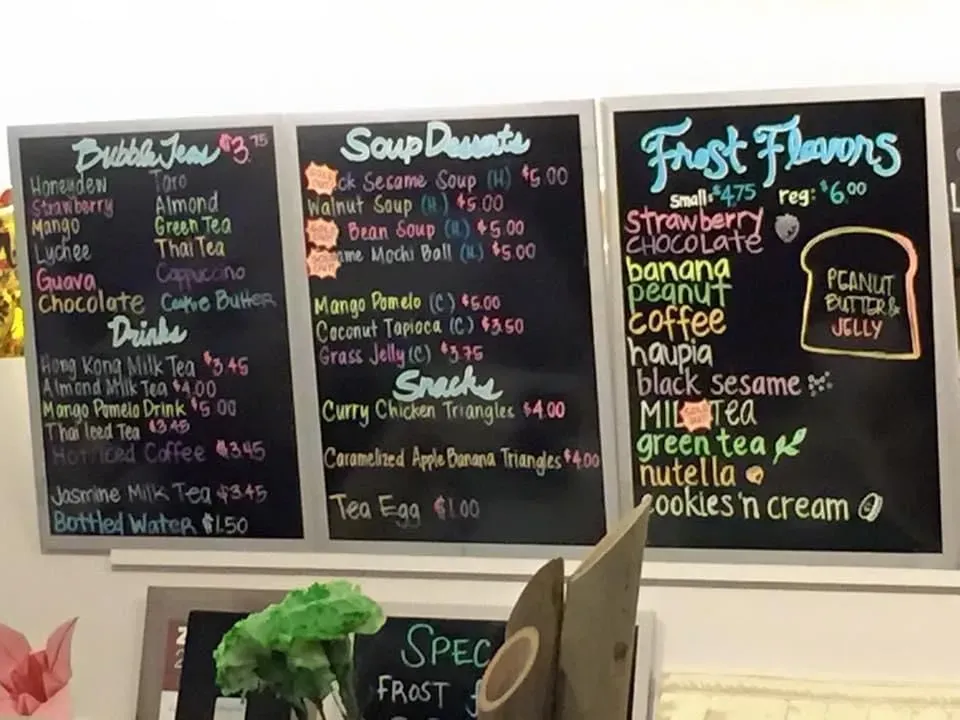 Bubble Teas $3.75
Honeydew Taro
Strawberry Almond
Mango Green Tea
Lychee Thai Tea
Guava Cappuccino
Chocolate Cookie Butter
Drinks
Hong Kong Milk Tea $3.45
Almond Milk Tea $4.00
Mango Pomelo Drink $5.00
Thai Iced Tea $3.45
Hot/Iced Coffee $3.45
Jasmine Milk Tea $3.45
Bottled Water $1.50
Soup Desserts
SOLD OUT ck Sesame Soup (H) $5.00
Walnut Soup (H) $5.00
SOLD OUT Bean Soup (H) $5.00
SOLD OUT ame Mochi Ball (H) $5.00
Mango Pomelo (C) $5.00
Coconut Tapioca (C) $3.50
Grass Jelly (C) $3.75
Snacks
Curry Chicken Triangles $4.00
Caramelized Apple Banana Triangles $4.00
Tea Egg $1.00
Frost Flavors
Small: $4.75 reg: $6.00
Strawberry
CHOCOLATE
banana
peanut
coffee
haupia
black sesame
MIL SOLD OUT TEA
green tea
nutella
cookies 'n cream
PEANUT
BUTTER &
JELLY
L
SPEC
FROST